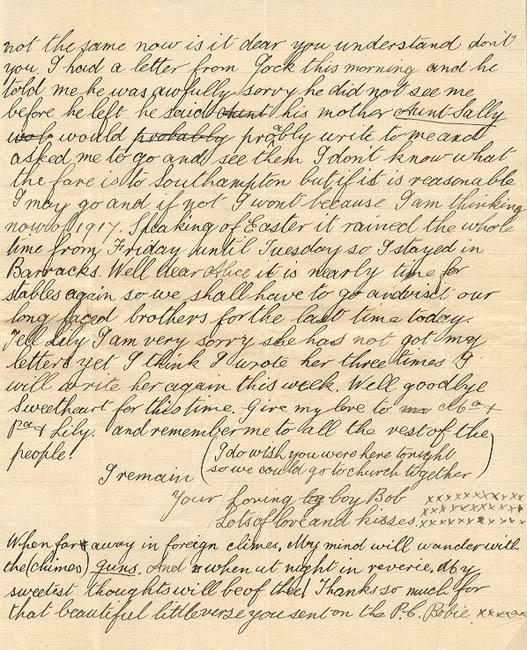 not the same now is it dear you understand don't
you, I had a letter from Jock this morning and he
told me he was awfully sorry he did not see me
before he left he said Aunt his mother Aunt Sally
would probably probably write to me and
asked me to go and see them I don't know what
the fare is to Southampton but if it is reasonable
I may go and if not I wont because I am thinking
now of 1917. Speaking of Easter it rained the whole
time from Friday until Tuesday so I stayed in
Barracks. Well dear Alice it is nearly time for
stables again so we shall have to go and visit our
long faced brothers for the last time today.
Tell Lily I am very sorry she has not got my
letters yet I think I wrote her three times I
will write her again this week. Well goodbye
Sweetheart for this time. Give my love to Ma +
Pa + Lily. and remember me to all the rest of the
people (I do wish you were here tonight
so we could go to church together)
I remain
Your loving boy Bob xxxxxxxxxx
Lots of love and kisses. xxxxxxxxxx
When far away in foreign climes, My mind will wander with
the (chimes) guns. And when at night in reverie, My
sweetest thoughts will be of thee! Thanks so much for
that beautiful little verse you sent on the P.C. Bobie. xxxxx